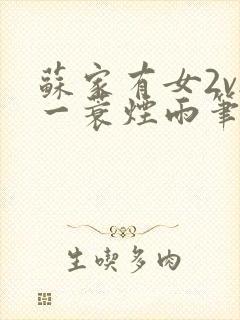 蘇家有女2v
一蓑煙雨筆
生喫多肉